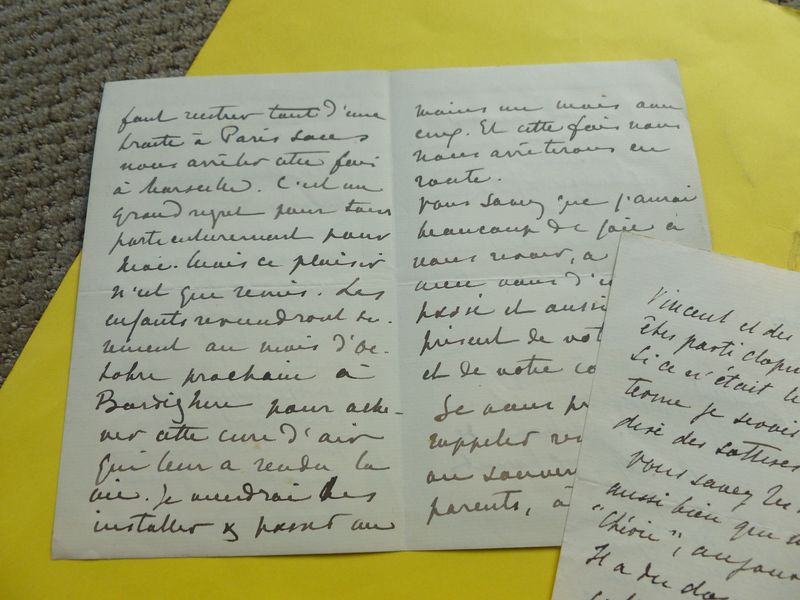 faut rentrer tout d'une
traite à Paris sans
nous arrêter cette fois
à Marseille. C'est un
grand regret pour tous
particulièrement pour
moi. Mais ce plaisir
n'est que remis. Les
enfants reviendront su-
rement au mois d'Oc-
tobre prochain à
Bordighere pour ache-
ver cette cure d'air
qui leur a rendu la
vie. Je viendrai les
installer & passer au
moins un mois avec
eux. Et cette fois nous
nous arrêterons en
route.
Vous savez que j'aurai
beaucoup de joie à
vous revoir, à
avec vous d'
passé et aussi
présent de vot
et de votre co
Je vous p
rappeler
au souven
parents, à
Vincent et des
êtes parti
Si ce n'était le
terme je serais
dire des sottises
Vous savez
aussi bien que
"Chérie", aujour
Il a du